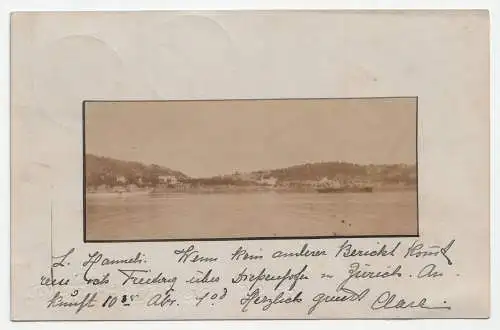 L. Hanneli. Wenn kein anderer Bericht kommt
reise nach Freiburg über Diessenhofen n Zürich. An
kunft 10 35 Abr. 1 03 Herzlich grüsst Clara.